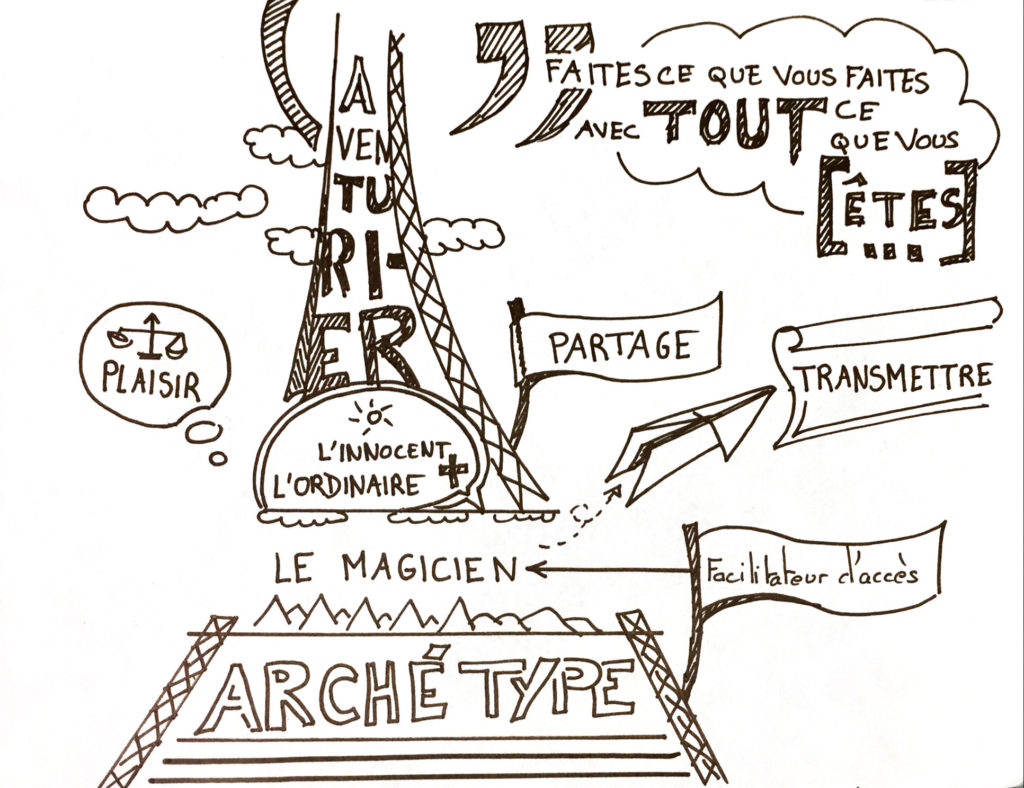 A
VEN
TU
RI-
ER
FAITES CE QUE VOUS FAITES
AVEC TOUT CE
QUE VOUS
[ÊTES]
...
PLAISIR
PARTAGE
TRANSMETTRE
L'INNOCENT
L'ORDINAIRE +
LE MAGICIEN
Facilitateur d'accès
ARCHÉTYPE